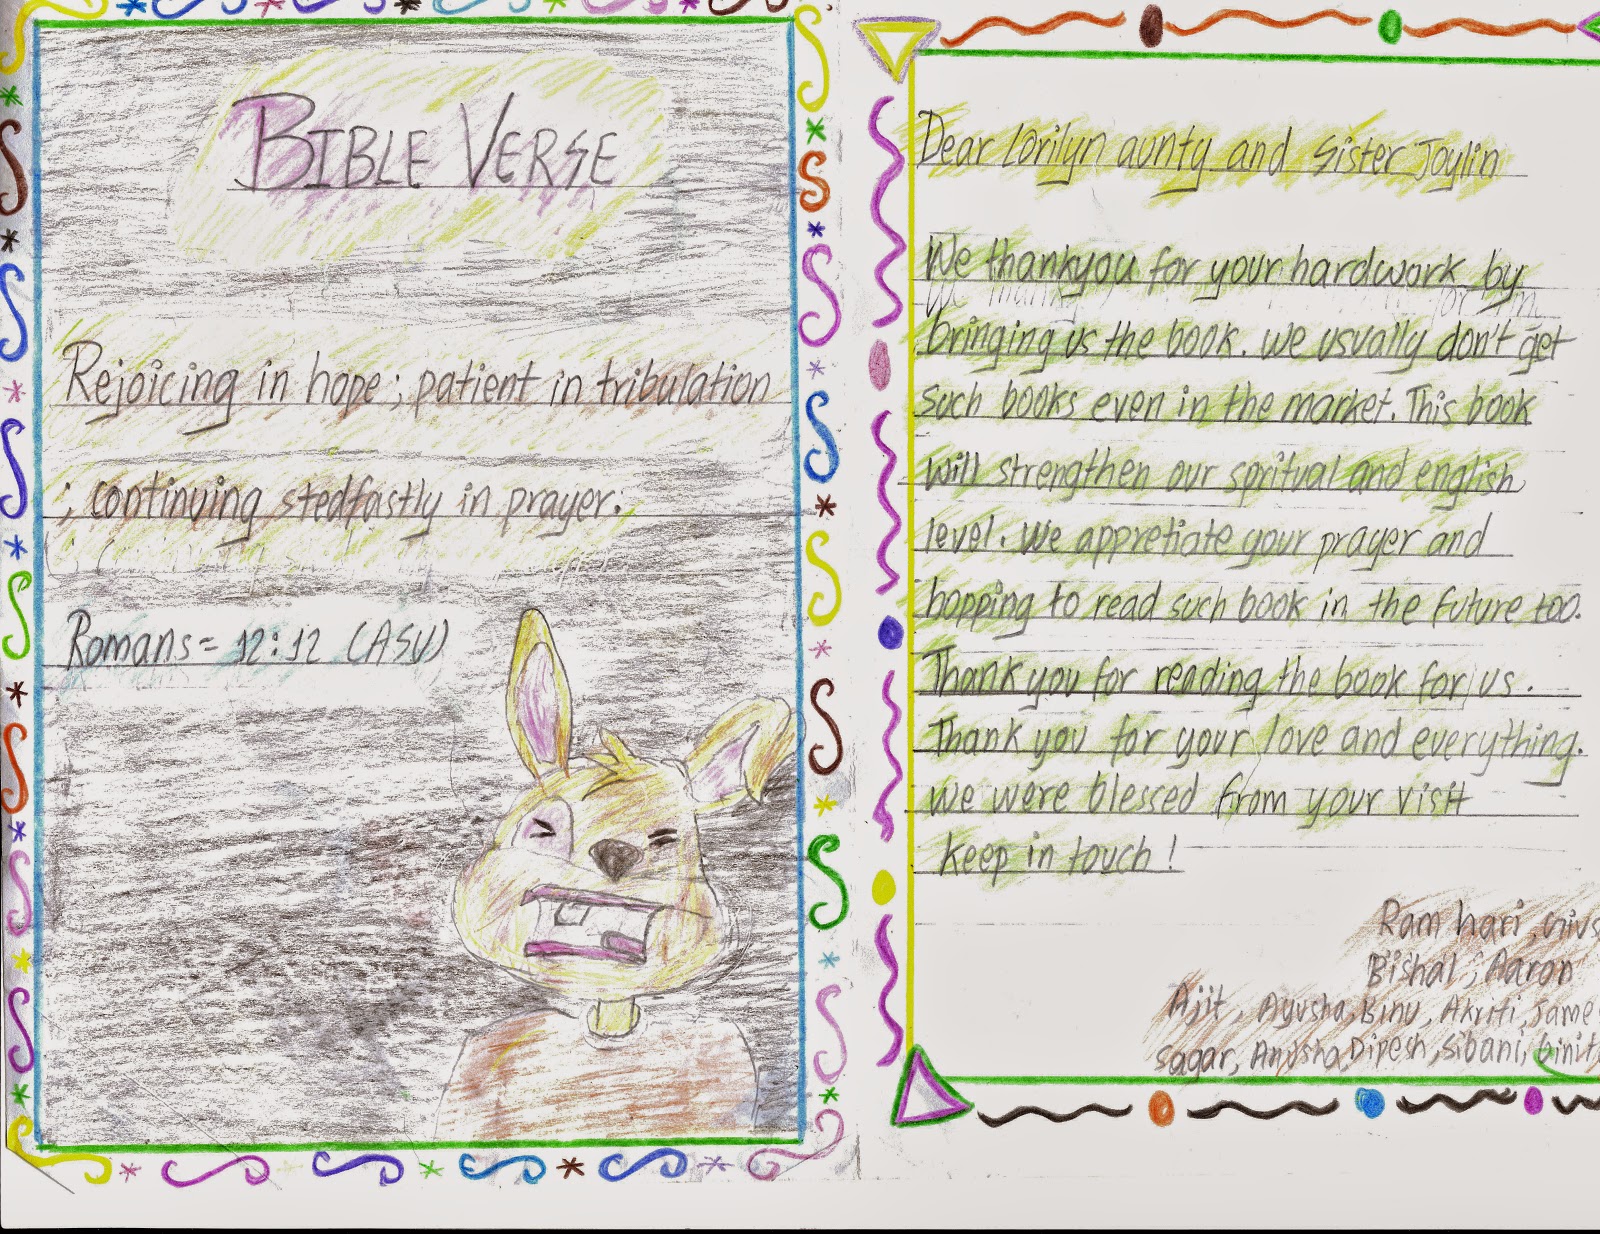 BIBLE VERSE
Rejoicing in hope; patient in tribulation
; continuing stedfastly in prayer:
Romans= 12:12 (ASV)
Dear Lorilyn aunty and Sister Joylin
We thankyou for your hardwork by
bringing us the book. we usually don't get
such books even in the market. This book
will strengthen our spritual and english
level. We appretiate your prayer and
hopping to read such book in the future too.
Thank you for reading the book for us.
Thank you for your love and everything.
we were blessed from your visit
Keep in touch!
Ram hari,
Bishal, Aaron
Ajit, Ayusha, Binu, Akriti, Jame
Sagar, Anusha, Dipesh, Sibani,